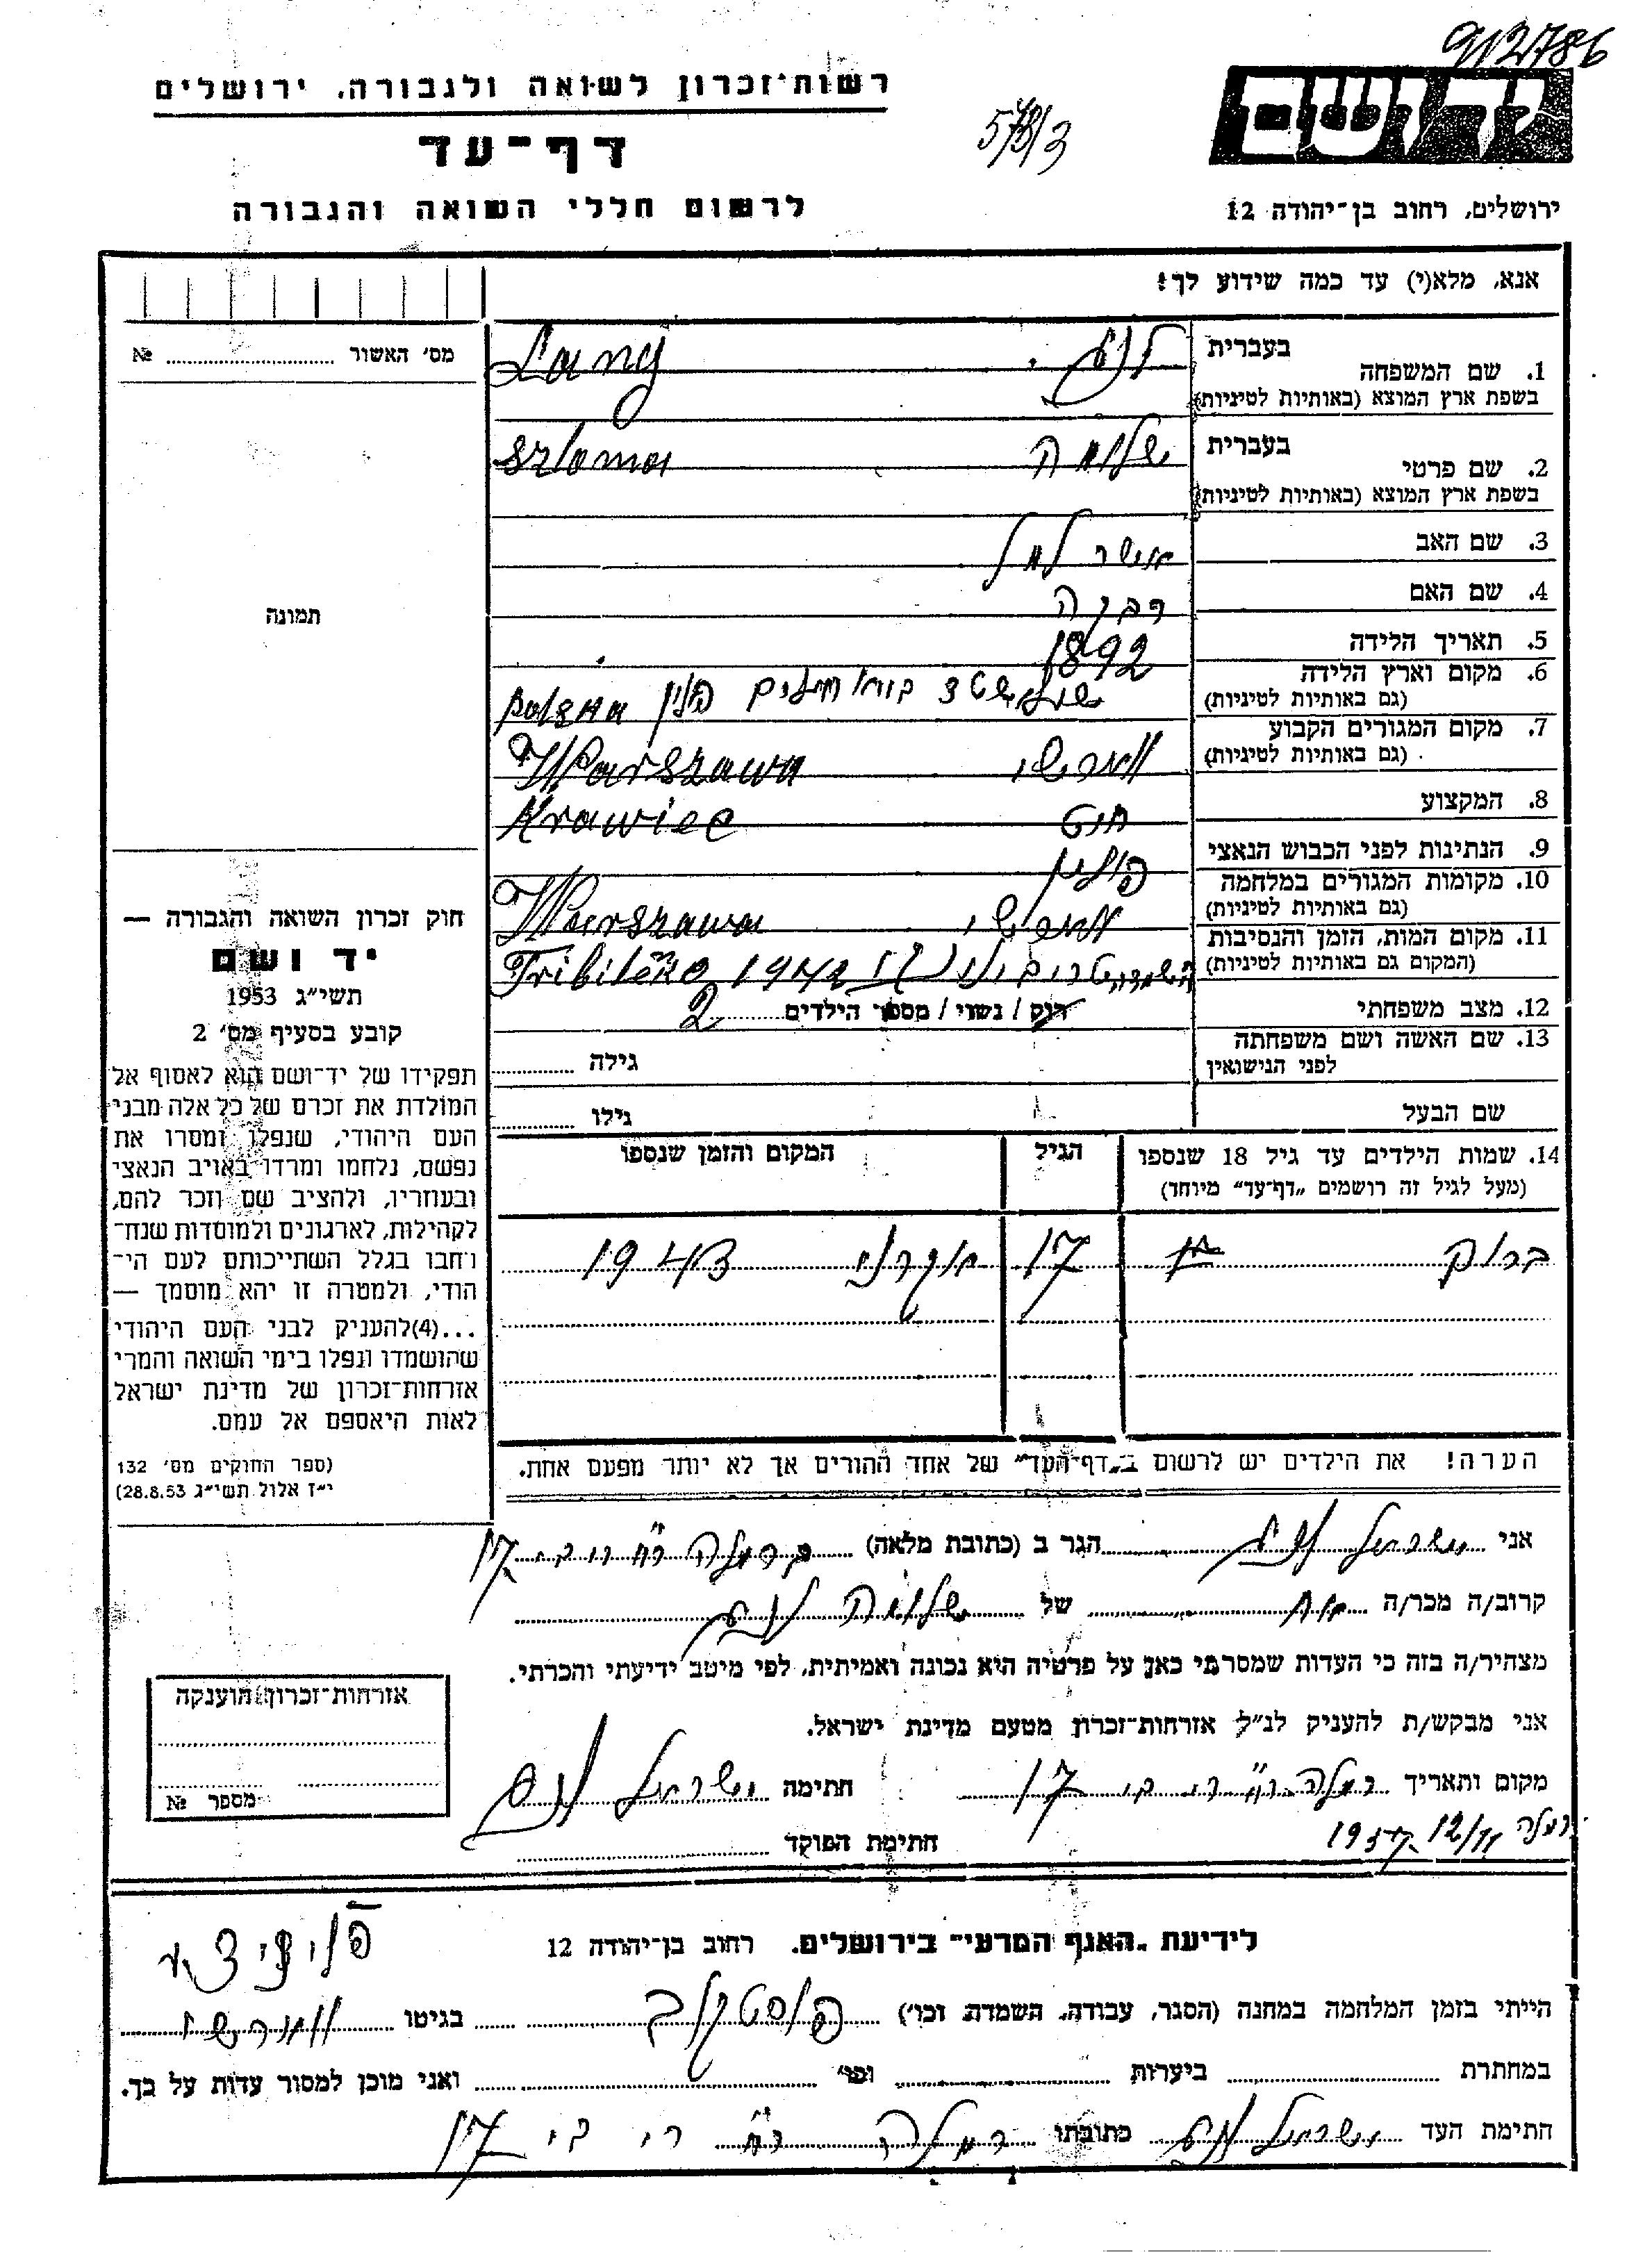 912786
רשות־זכרון לשואה ולגבורה, ירושלים
יד ושם
573/3
דף־עד
לרשום חללי השואה והגבורה
ירושלים, רחוב בן־יהודה 12
אנא, מלא(י) עד כמה שידוע לך!
מס׳ האשור № 
1. שם המשפחה בעברית לנג Lang
בשפת ארץ המוצא (באותיות לטיניות)
2. שם פרטי בעברית שלומה Szloma
בשפת ארץ המוצא (באותיות לטיניות)
3. שם האב אשר למל
4. שם האם רבקה
5. תאריך הלידה 1892
6. מקום וארץ הלידה פולין Polska
(גם באותיות לטיניות)
7. מקום המגורים הקבוע ווארשי Warszawa
(גם באותיות לטיניות)
8. המקצוע חיט Krawiec
9. הנתינות לפני הכבוש הנאצי פולין
10. מקומות המגורים במלחמה ווארשי Warszawa
(גם באותיות לטיניות)
11. מקום המות, הזמן והנסיבות Tribilẽka 1942
(המקום גם באותיות לטיניות)
12. מצב משפחתי רוק / נשוי / מספר הילדים 2
13. שם האשה ושם משפחתה לפני הנישואין גילה
שם הבעל גילו
14. שמות הילדים עד גיל 18 שנספו הגיל המקום והזמן שנספו
(מעל לגיל זה רושמים „דף־עד״ מיוחד)
ברוך 17 1943
הערה! את הילדים יש לרשום ב„דף־העד״ של אחד ההורים אך לא יותר מפעם אחת.
תמונה
חוק זכרון השואה והגבורה —
יד ושם
תשי״ג 1953
קובע בסעיף מס׳ 2
תפקידו של יד־ושם הוא לאסוף אל
המולדת את זכרם של כל אלה מבני
העם היהודי, שנפלו ומסרו את
נפשם, נלחמו ומרדו באויב הנאצי
ובעוזריו, ולהציב שם וזכר להם,
לקהילות, לארגונים ולמוסדות שנח־
רבו בגלל השתייכותם לעם הי־
הודי, ולמטרה זו יהא מוסמך —
...(4)להעניק לבני העם היהודי
שהושמדו ונפלו בימי השואה והמרי
אזרחות־זכרון של מדינת ישראל
לאות היאספם אל עמם.
(ספר החוקים מס׳ 132
י״ז אלול תשי״ג 28.8.53)
אני ישראל לנג הגר ב (כתובת מלאה) ברמלה 17
קרוב/ה מכר/ה אח של שלומה לנג
מצהיר/ה בזה כי העדות שמסרתי כאן על פרטיה היא נכונה ואמיתית, לפי מיטב ידיעתי והכרתי.
אני מבקש/ת להעניק לנ״ל אזרחות־זכרון מטעם מדינת ישראל.
מקום ותאריך רמלה 17 חתימה ישראל לנג
רמלה 12/11 1957
חתימת הפוקד
אזרחות־זכרון הוענקה
מספר №
לידיעת „האגף המדעי״ בירושלים, רחוב בן־יהודה 12
הייתי בזמן המלחמה במחנה (הסגר, עבודה, השמדה, וכו׳) בגיטו ווארשי
במחתרת ביערות וכו׳ ואני מוכן למסור עדות על כך.
חתימת העד ישראל לנג כתובתו רמלה 17